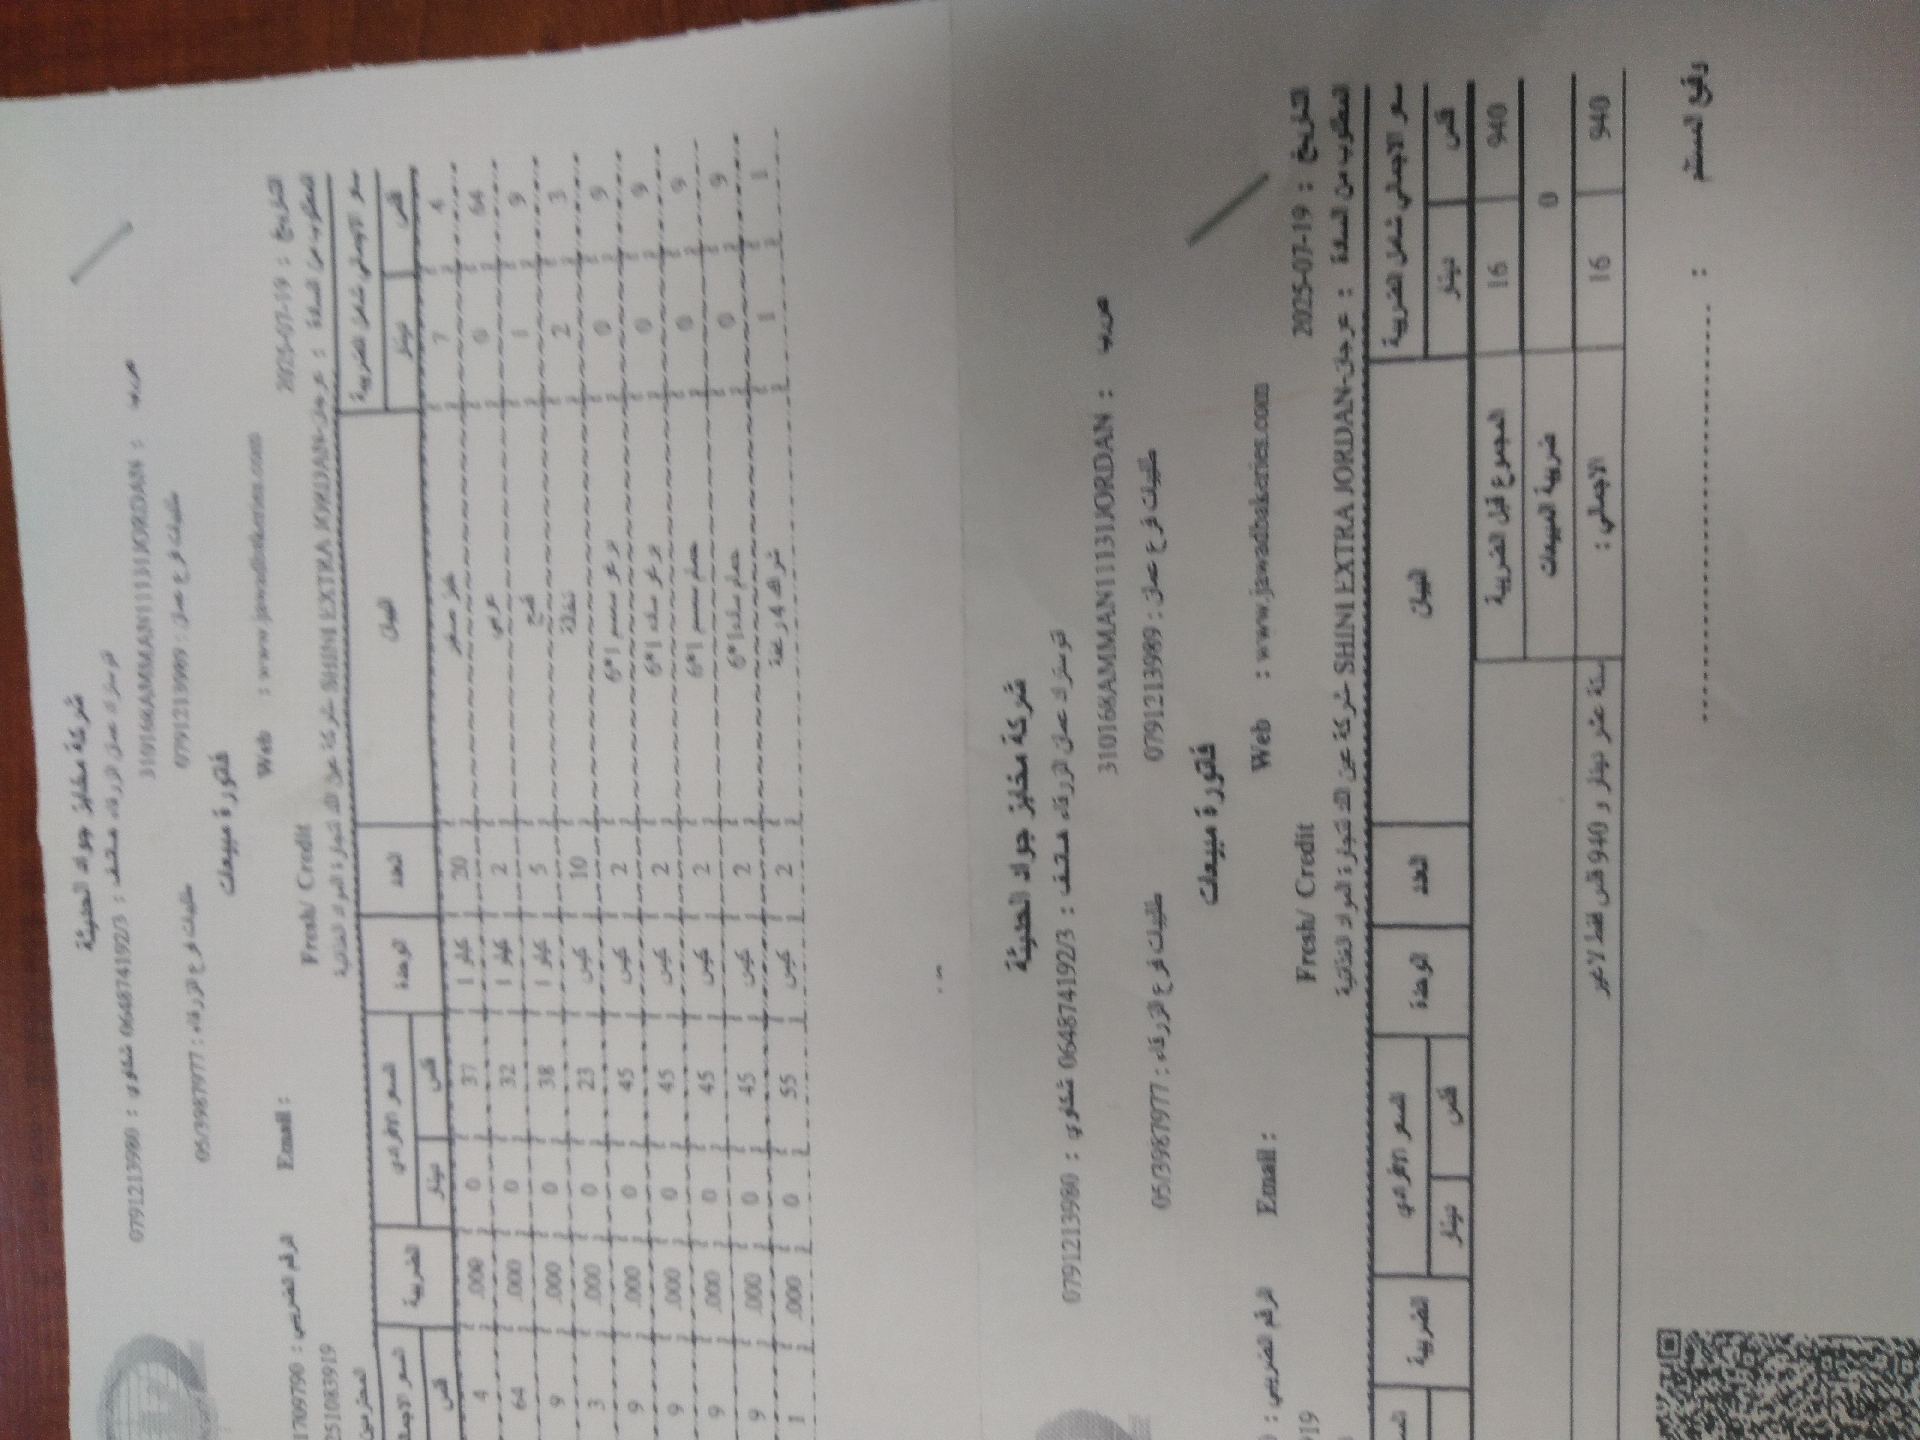 شركة مخابز جواد الحديثة
اوتوستراد عمان الزرقاء هاتف : 064874192/3 شكاوي : 0791213980
310168AMMAN11131JORDAN : ص.ب
طلبيات فرع عمان : 0791213989 طلبيات فرع الزرقاء : 05/3987977
فاتورة مبيعات
Web : www.jawadbakeries.com
التاريخ : 2025-07-19 Fresh/ Credit Email : الرقم الضريبي : 1709790
المطلوب من السادة : عرجان-SHINI EXTRA JORDAN شركة عين الله لتجارة المواد الغذائية 2510839 19
سعر الاجمالي شامل الضريبة البيان العدد الوحدة السعر الافرادي الضريبة السعر الاجمالي
دينار فلس دينار فلس فلس
7 4 خبز صغير 20 كيلو 1 0 37 .000 4
0 64 عربي 2 كيلو 1 0 32 .000 64
1 9 قمح 5 كيلو 1 0 38 .000 9
2 3 نخالة 10 كيس 0 23 .000 3
0 9 برغر سمسم 1*6 2 كيس 0 45 .000 9
0 9 برغر ساده 1*6 2 كيس 0 45 .000 9
0 9 حمام سمسم 1*6 2 كيس 0 45 .000 9
0 9 حمام ساده 1*6 2 كيس 0 45 .000 9
1 1 شراك 4 رغفة 2 كيس 0 55 .000 1
شركة مخابز جواد الحديثة
اوتوستراد عمان الزرقاء هاتف : 064874192/3 شكاوي : 0791213980
310168AMMAN11131JORDAN : ص.ب
طلبيات فرع عمان : 0791213989 طلبيات فرع الزرقاء : 05/3987977
فاتورة مبيعات
Web : www.jawadbakeries.com
التاريخ : 2025-07-19 Fresh/ Credit Email : الرقم الضريبي :
المطلوب من السادة : عرجان-SHINI EXTRA JORDAN شركة عين الله لتجارة المواد الغذائية 919
سعر الاجمالي شامل الضريبة البيان العدد الوحدة السعر الافرادي الضريبة
دينار فلس دينار فلس
16 940 المجموع قبل الضريبة
0 ضريبة المبيعات
16 940 الاجمالي : ستة عشر دينار و 940 فلس فقط لا غير